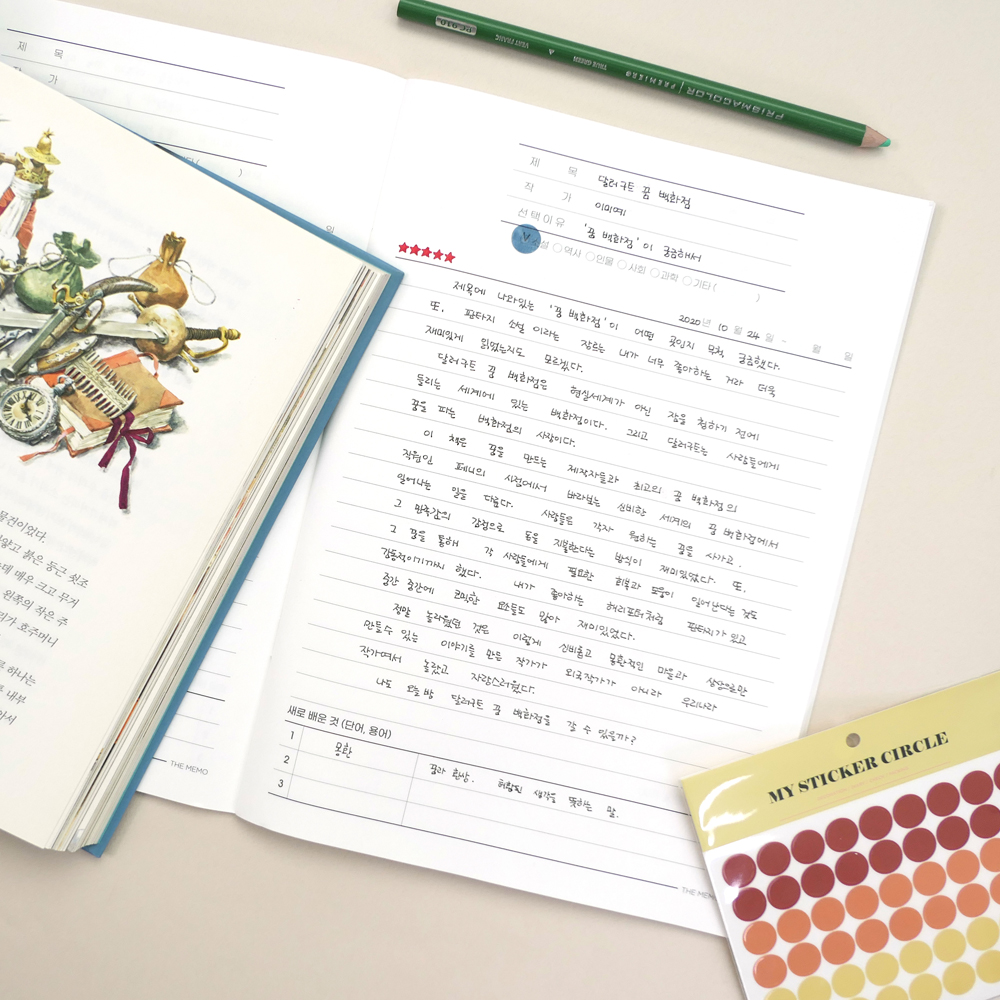 PRISMACOLOR | PREMIER
TRUE GREEN
VERT FRANC
제 목
작 가
일
THE MEMO
물건이었다.
얗고 붉은 둥근 쇳조
는데 매우 크고 무거
왼쪽의 작은 주
가 호주머니
하나는
내부
아서
제 목 달러구트 꿈 백화점
작 가 이미예
선택이유 '꿈 백화점'이 궁금해서
소설 역사 인물 사회 과학 기타 ( )
2020년 10월 24일 ~ 월 일
제목에 나와있는 '꿈 백화점'이 어떤 곳인지 무척 궁금했다.
또, 판타지 소설이라는 장르는 내가 너무 좋아하는 거라 더욱
재미있게 읽었는지도 모르겠다.
달러구트 꿈 백화점은 현실세계가 아닌 잠을 청하기 전에
들리는 세계에 있는 백화점이다. 그리고 달러구트는 사람들에게
꿈을 파는 백화점의 사장이다.
이 책은 꿈을 만드는 제작자들과 최고의 꿈 백화점의
직원인 페니의 시점에서 바라보는 신비한 세계의 꿈 백화점에서
일어나는 일을 다룬다. 사람들은 각자 원하는 꿈을 사가고,
그 만족감의 감정으로 돈을 지불한다는 방식이 재미있었다. 또,
그 꿈을 통해 각 사람들에게 필요한 회복과 도움이 일어난다는 것도
감동적이기까지 했다. 내가 좋아하는 해리포터처럼 판타지가 있고
중간 중간에 코믹한 요소들도 많아 재미있었다.
정말 놀라웠던 것은 이렇게 신비롭고 몽환적인 마을과 상상으로만
만들수 있는 이야기를 만든 작가가 외국작가가 아니라 우리나라
작가여서 놀랐고 자랑스러웠다.
나도 오늘밤 달러구트 꿈 백화점을 갈 수 있을까?
새로 배운 것 (단어, 용어)
1 몽환 꿈과 환상. 허황된 생각을 뜻하는 말.
2
3
THE MEMO
MY STICKER CIRCLE